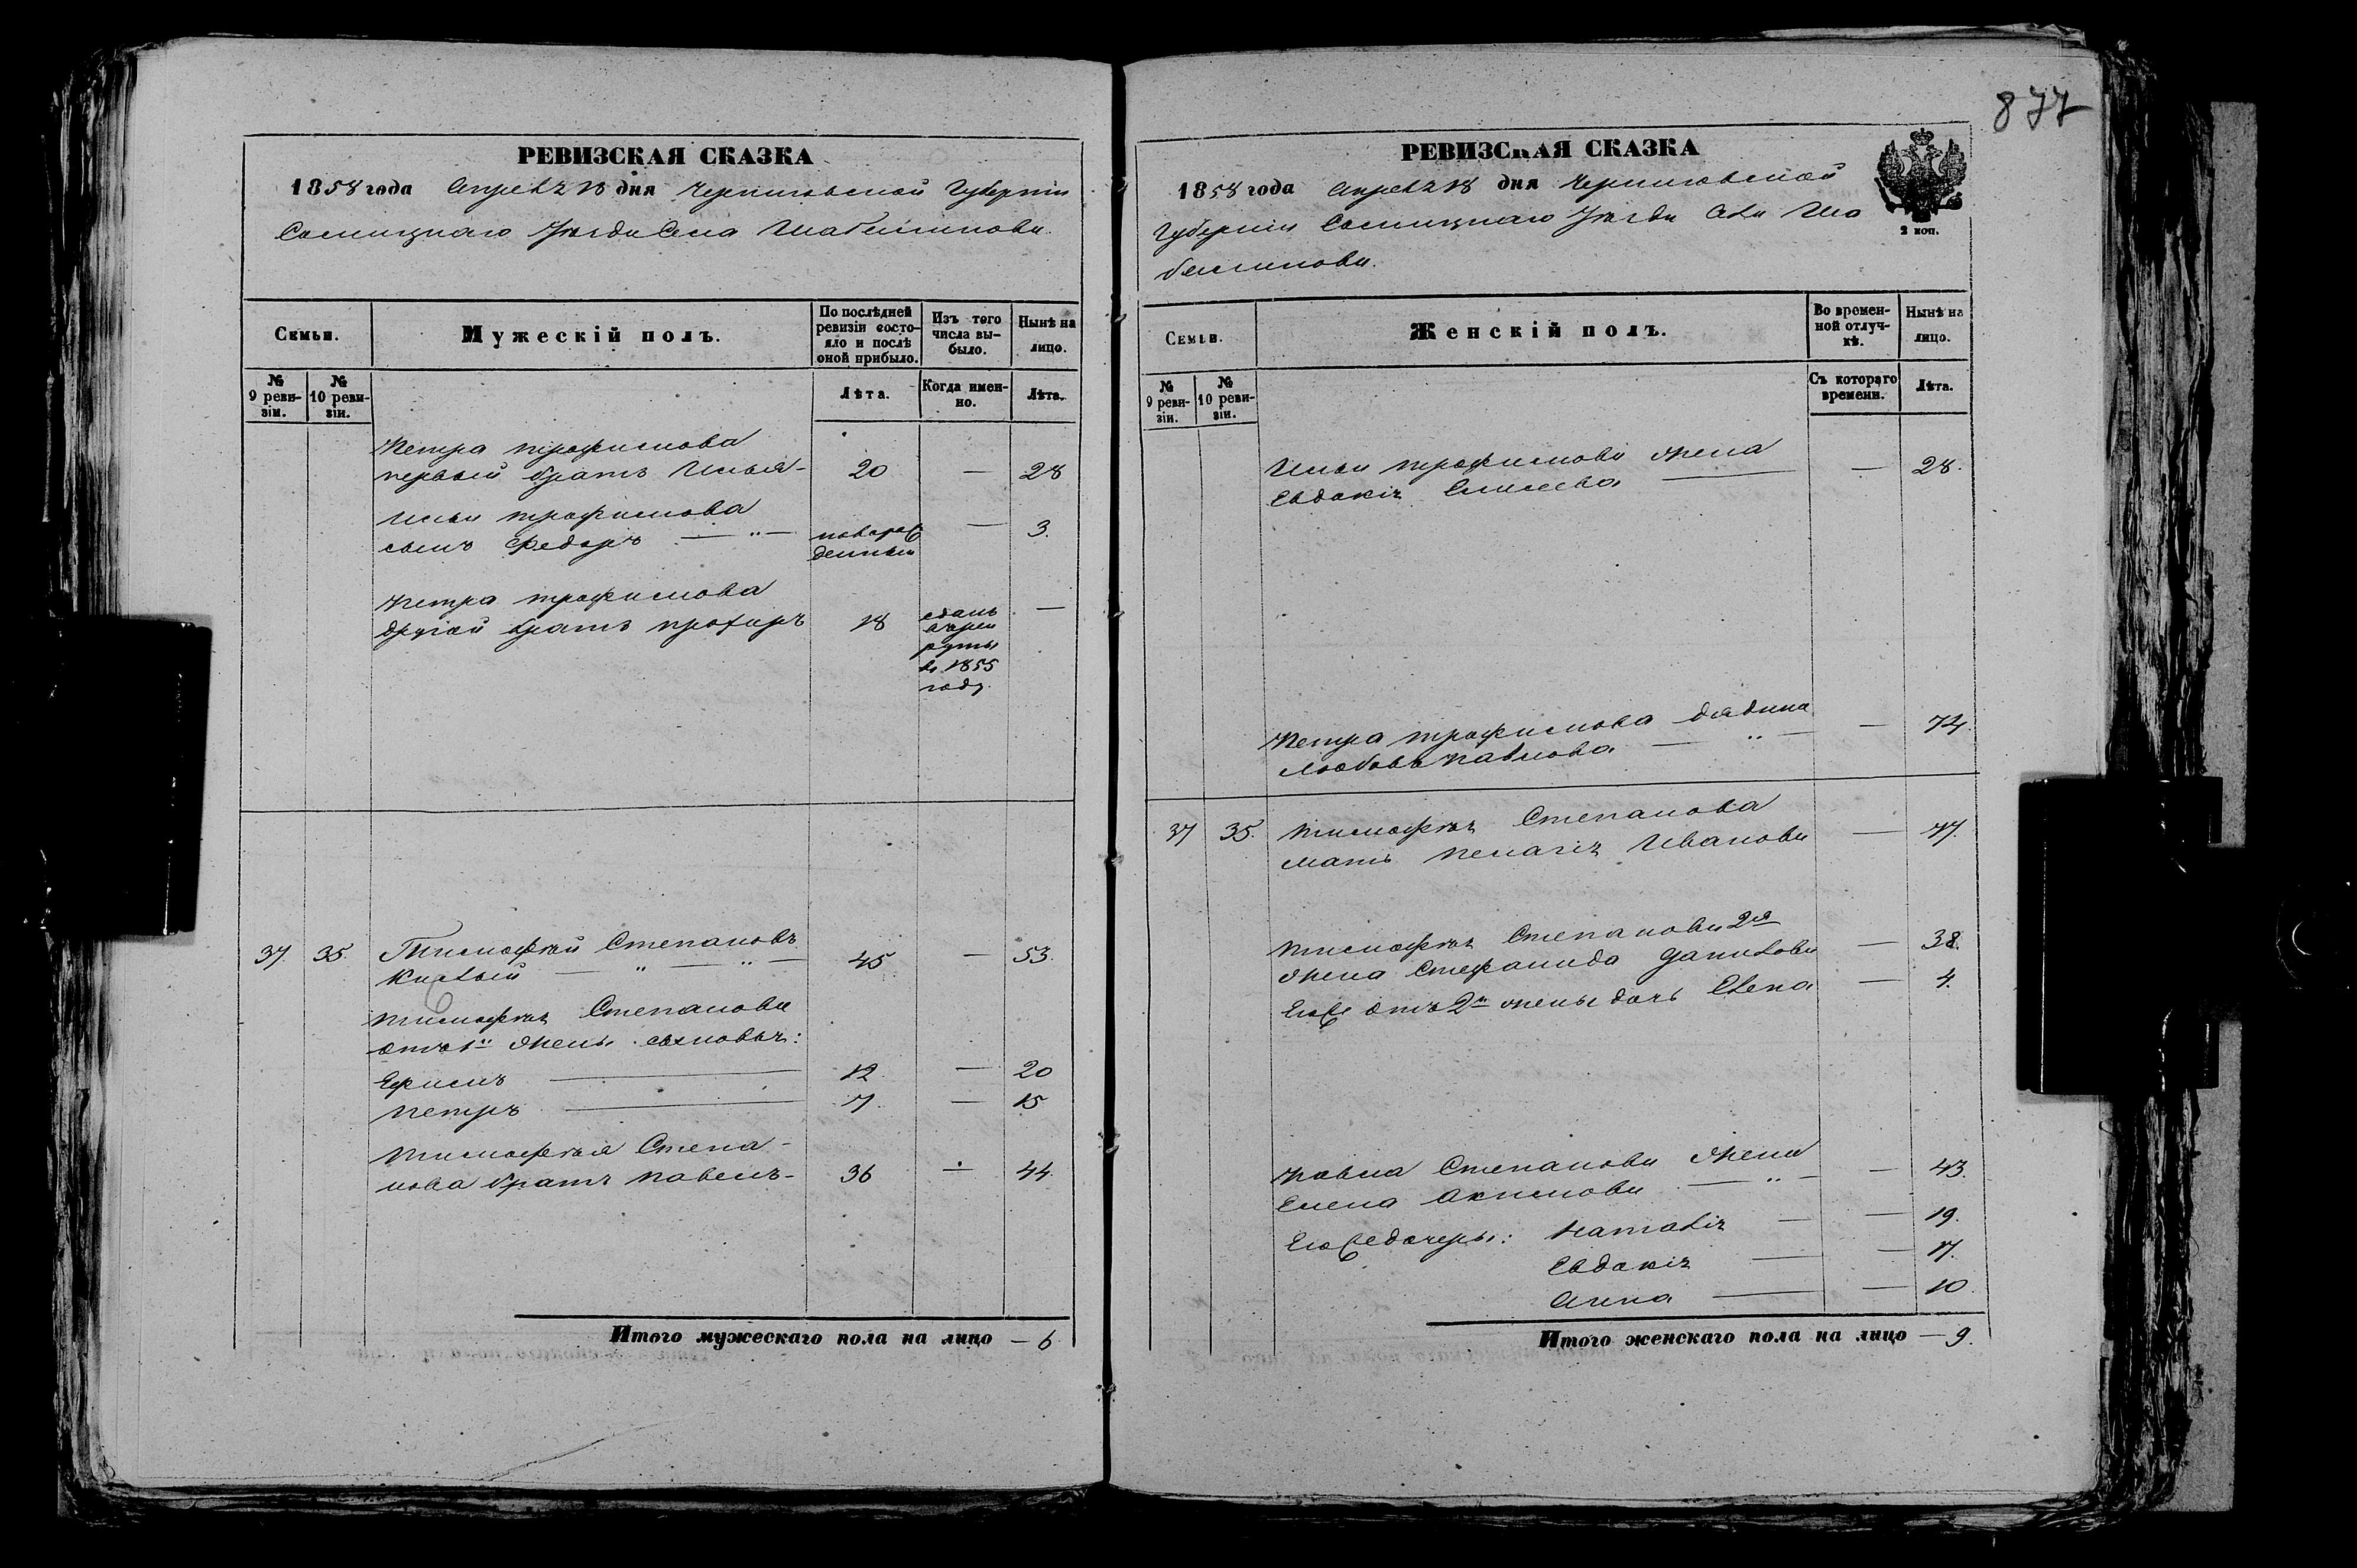 877
РЕВИЗСКАЯ СКАЗКА
1858 года Апреля 18 дня Черниговской Губернии
Сосницкаго Уѣзда Села Шабалинова.
Семьи.
Мужескій полъ.
По послѣдней ревизіи состояло и послѣ оной прибыло.
Изъ того числа выбыло.
Нынѣ на лицо.
№ 9 ревизіи.
№ 10 ревизіи.
Лѣта.
Когда именно.
Лѣта.
Петра трофимова
первый братъ Илья - 20 — 28
Ильи трофимова
сынъ Федоръ — " — новорож — 3.
денный
Петра трофимова
другой братъ 18 —
сданъ
в рек
руты
в 1855
году.
37. 35. Тимофѣй Степановъ
— " — " — 45 — 53.
Тимофѣя Степанова
отъ 1й жены сыновья:
Ефимъ — 12 — 20
Петръ — 7. — 15
Тимофѣя Степа-
нова братъ Павелъ - 36 — 44
Итого мужескаго пола на лицо — 6
РЕВИЗСКАЯ СКАЗКА
1858 года Апреля 18 дня Черниговской
Губернии Сосницкаго Уѣзда Села Ша
балинова.
2 коп.
Семьи.
Женскій полъ.
Во временной отлучкѣ.
Нынѣ на лицо.
№ 9 ревизіи.
№ 10 ревизіи.
Съ котораго времени.
Лѣта.
Ильи трофимова жена
Евдокія Елисеева — — 28.
Петра трофимова дядина
Любовь Павлова — " — — 74.
37 35. Тимофѣя Степанова
мать Пелагія Иванова — 77.
Тимофѣя Степанова 2я
жена Стефанида Данилова — 38.
Егоже отъ 2й жены дочь Елена — 4.
Павла Степанова жена
Елена Акимова — " — — 43.
Егоже дочери: Наталія — — 19.
Евдокія — — 17.
Анна — — 10
Итого женскаго пола на лицо — 9.